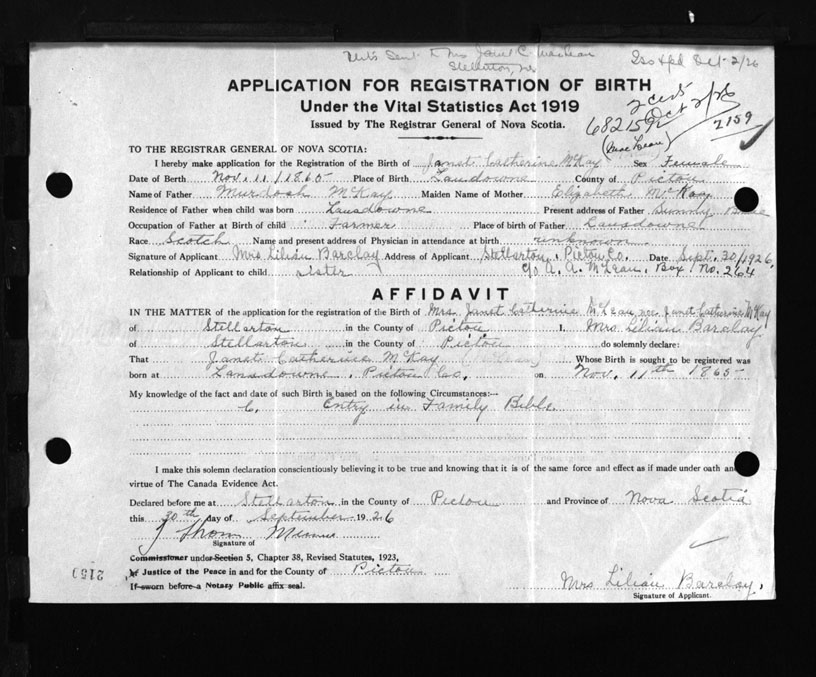 Sent to Mrs Janet C. MacLean Iss & pd Oct 2/26
Stellarton, NS
APPLICATION FOR REGISTRATION OF BIRTH
Under the Vital Statistics Act 1919
Issued by The Registrar General of Nova Scotia.
2 certs Oct 2/26
68215
2159
(MacLean)
TO THE REGISTRAR GENERAL OF NOVA SCOTIA:
I hereby make application for the Registration of the Birth of Janet Catherine McKay Sex Female
Date of Birth Nov. 11 / 1865 Place of Birth Lansdowne County of Pictou
Name of Father Murdoch McKay Maiden Name of Mother Elizabeth McKay
Residence of Father when child was born Lansdowne Present address of Father Sunny Brae
Occupation of Father at Birth of child Farmer Place of birth of Father Lansdowne
Race Scotch Name and present address of Physician in attendance at birth unknown
Signature of Applicant Mrs Lilian Barclay Address of Applicant Stellarton, Pictou Co. Date Sept. 30/1926
Relationship of Applicant to child sister c/o A. A. McLean, Box No. 264
AFFIDAVIT
IN THE MATTER of the application for the registration of the Birth of Mrs. Janet Catherine McLean nee Janet Catherine McKay
of Stellarton in the County of Pictou I, Mrs Lilian Barclay
of Stellarton in the County of Pictou do solemnly declare:
That Janet Catherine McKay Whose Birth is sought to be registered was
born at Lansdowne, Pictou Co. on Nov. 11th 1865
My knowledge of the fact and date of such Birth is based on the following Circumstances:—
Entry in Family Bible.
I make this solemn declaration conscientiously believing it to be true and knowing that it is of the same force and effect as if made under oath and
virtue of The Canada Evidence Act.
Declared before me at Stellarton in the County of Pictou and Province of Nova Scotia
this 30th day of September 1926
J Thom
Signature of
Commissioner under Section 5, Chapter 38, Revised Statutes, 1923,
Justice of the Peace in and for the County of Pictou
If sworn before a Notary Public affix seal.
Mrs Lilian Barclay.
Signature of Applicant.
2159